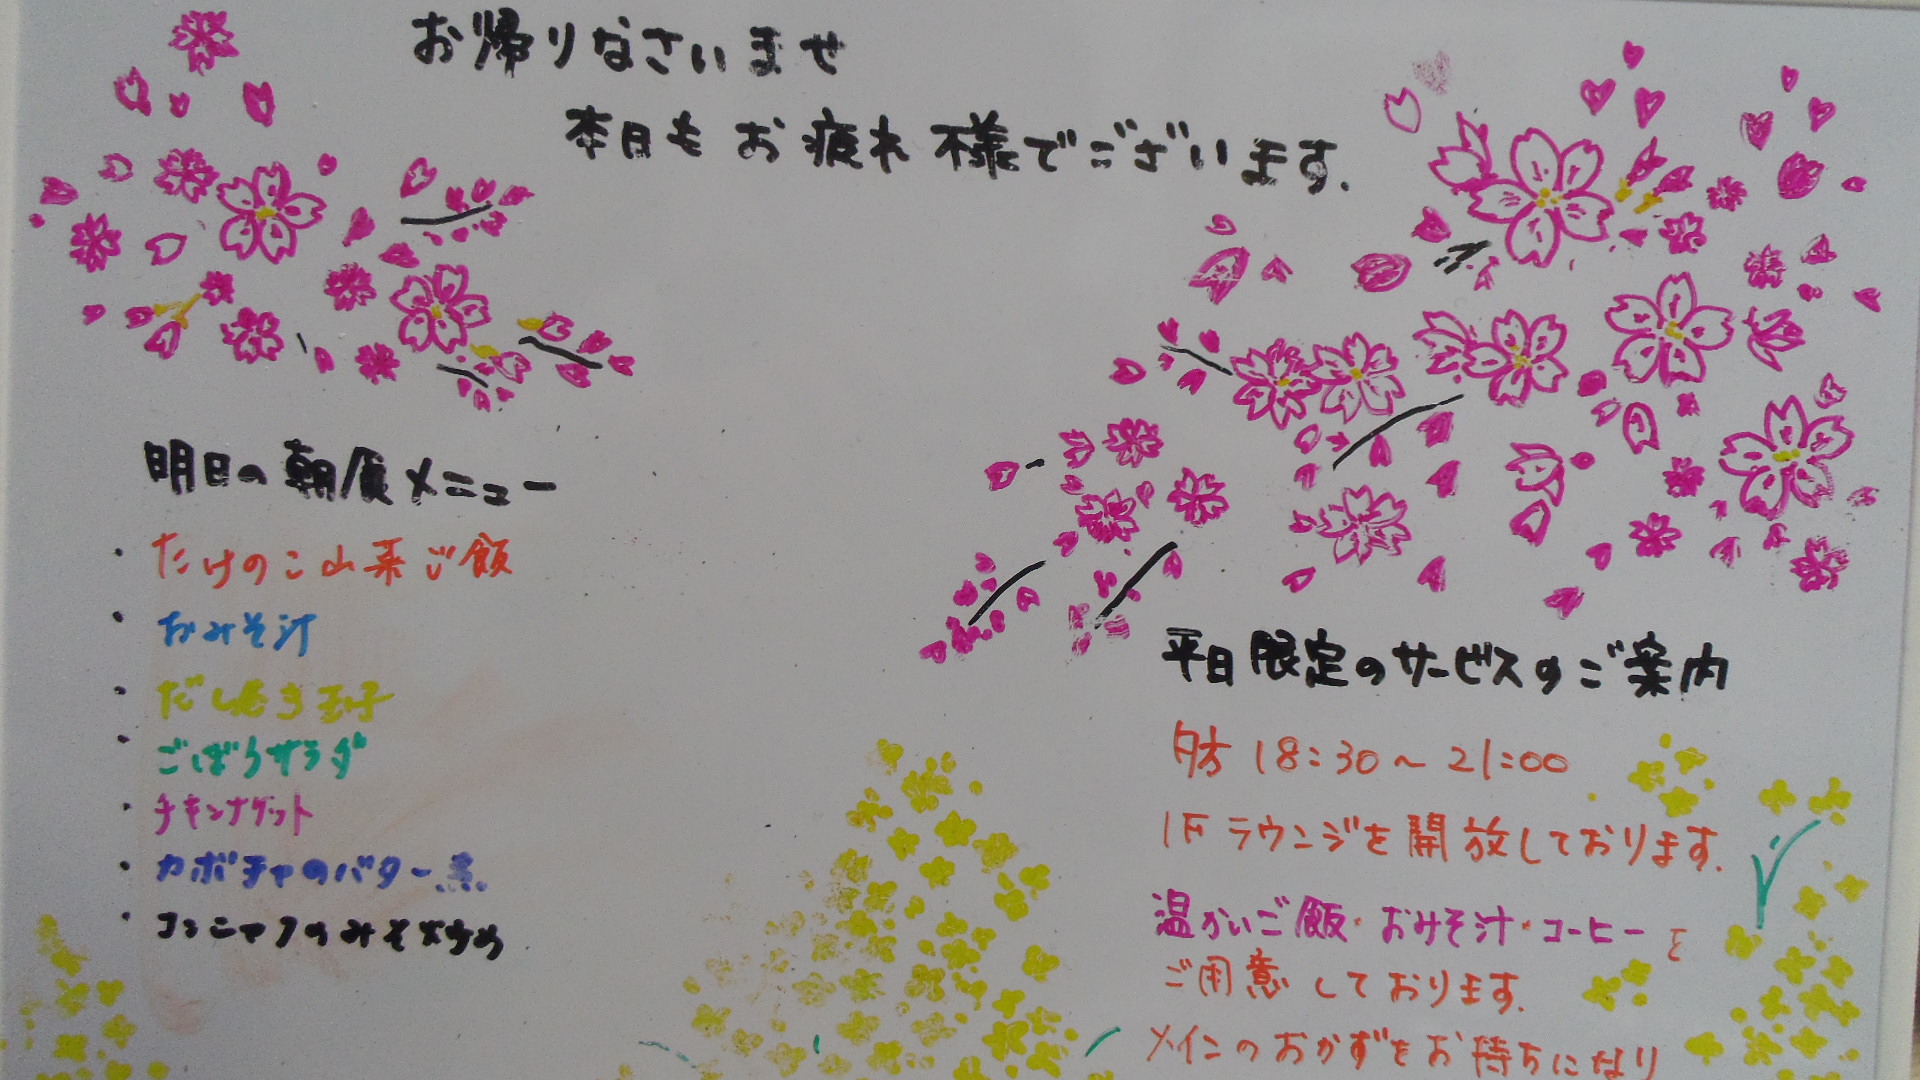 お帰りなさいませ
本日もお疲れ様でございます.
明日の朝食メニュー
・たけのこ山菜ご飯
・おみそ汁
・だし巻き玉子
・ごぼうサラダ
・チキンナゲット
・カボチャのバター煮
・コンニャクのみそ炒め
平日限定のサービスのご案内
夕方 18:30～21:00
1Fラウンジを開放しております.
温かいご飯・おみそ汁・コーヒーを
ご用意しております.
メインのおかずをお持ちになり